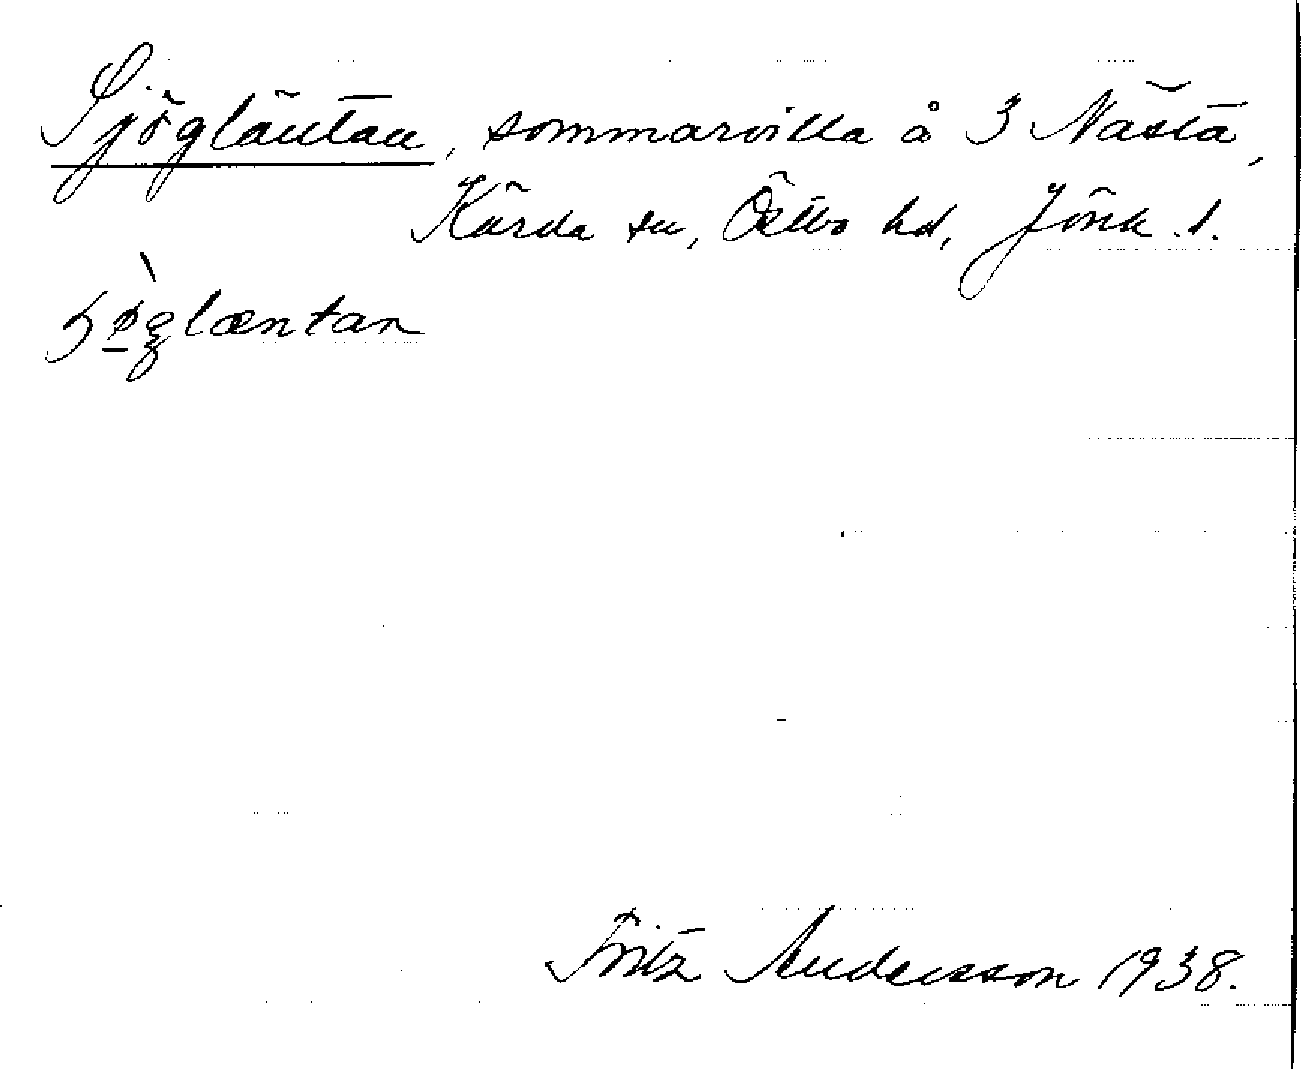 Sjögläntan, sommarvilla å 3 Nästa,
Kärda sn, Östbo hd, Jönk. l.
Fritz Andersson 1938.